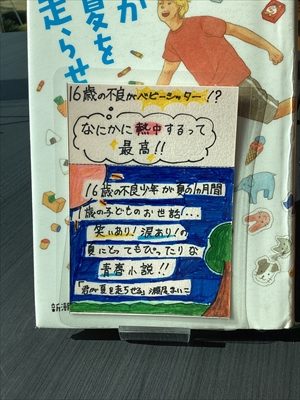 が
夏を
走らせ
16歳の不良がベビーシッター!?
なにかに熱中するって
最高!!
16歳の不良少年が夏の1ヵ月間
1歳の子どものお世話...
笑いあり!涙あり!の
夏にとってもぴったりな
青春小説!!
「君が夏を走らせる」瀬尾まいこ
新潮